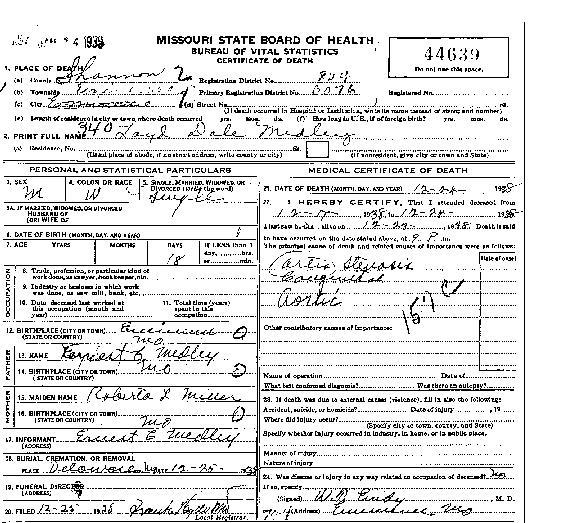 1938
MISSOURI STATE BOARD OF HEALTH
BUREAU OF VITAL STATISTICS
CERTIFICATE OF DEATH
44639
Do not use this space.
1. PLACE OF DEATH
(a) County Shannon Registration District No. 824
(b) Township Primary Registration District No. Registered No.
(c) City (d) Street No. St.
(If death occurred in Hospital or Institution, write its name instead of street and number)
(e) Length of residence in city or town where death occurred yrs. mos. ds. (f) How long in U.S., if of foreign birth? yrs. mos. ds.
2. PRINT FULL NAME Loyd Dale Medley
340
(a) Residence, No. St.
(Usual place of abode, if no street address, write county or city) (If nonresident, give city or town and State)
PERSONAL AND STATISTICAL PARTICULARS
3. SEX 4. COLOR OR RACE 5. SINGLE, MARRIED, WIDOWED, OR DIVORCED (write the word)
M W Single
5A. IF MARRIED, WIDOWED, OR DIVORCED
HUSBAND OF
(OR) WIFE OF
6. DATE OF BIRTH (MONTH, DAY, AND YEAR)
7. AGE YEARS MONTHS DAYS IF LESS than 1 day, hrs. or min.
18
OCCUPATION
8. Trade, profession, or particular kind of work done, as sawyer, bookkeeper, etc.
9. Industry or business in which work was done, as saw mill, bank, etc.
10. Date deceased last worked at this occupation (month and year)
11. Total time (years) spent in this occupation
12. BIRTHPLACE (CITY OR TOWN) Eminence
(STATE OR COUNTRY) Mo
FATHER
13. NAME Ernest E Medley
14. BIRTHPLACE (CITY OR TOWN)
(STATE OR COUNTRY) Mo
MOTHER
15. MAIDEN NAME Roberta L Miller
16. BIRTHPLACE (CITY OR TOWN)
(STATE OR COUNTRY) Mo
17. INFORMANT Ernest E Medley
(ADDRESS)
18. BURIAL, CREMATION, OR REMOVAL
PLACE DATE 12-25- 1938
19. FUNERAL DIRECTOR
(ADDRESS)
20. FILED 12-25 1938
Local Registrar.
MEDICAL CERTIFICATE OF DEATH
21. DATE OF DEATH (MONTH, DAY, AND YEAR) 12-24- 1938
22. I HEREBY CERTIFY, That I attended deceased from
1938 to 12-24- 1938
I last saw h alive on 1938 Death is said
to have occurred on the date stated above, at 9 P. m.
The principal cause of death and related causes of importance were as follows:
Date of onset
Stenosis
Congenital
Aortic
157
Other contributory causes of importance:
Name of operation Date of
What test confirmed diagnosis? Was there an autopsy?
23. If death was due to external causes (violence), fill in also the following:
Accident, suicide, or homicide? Date of injury , 19
Where did injury occur?
(Specify city or town, county, and State)
Specify whether injury occurred in industry, in home, or in public place.
Manner of injury
Nature of injury
24. Was disease or injury in any way related to occupation of deceased? No
If so, specify
(Signed) , M. D.
(Address) Eminence, Mo